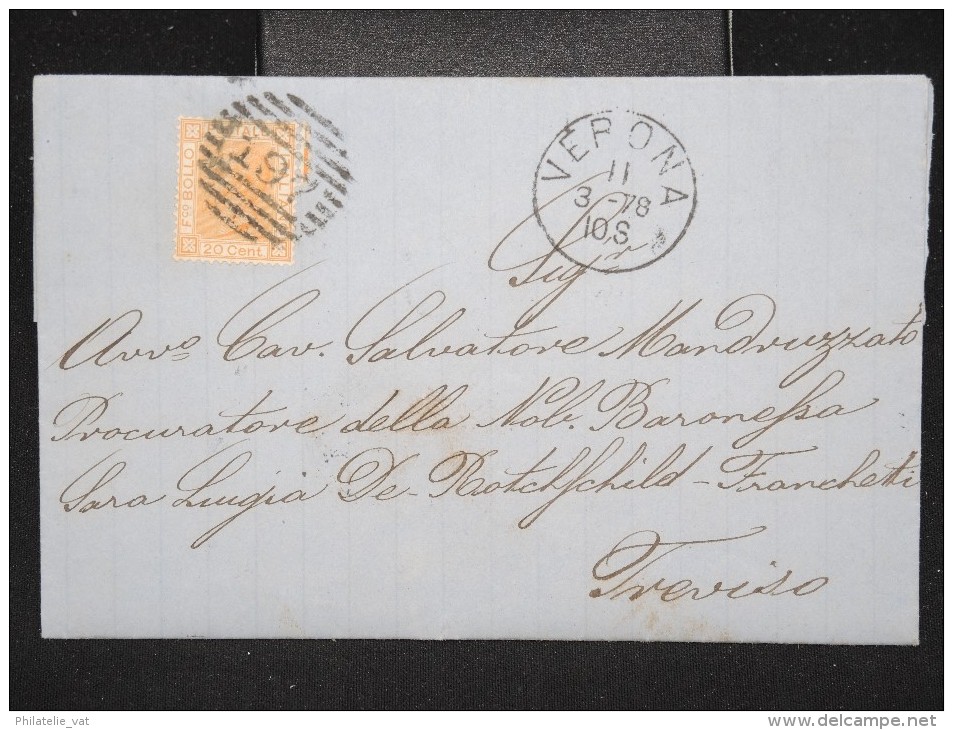 F.co BOLLO
20 Cent.
VERONA
11
3 - 78
10 S
Sigr
Avvo Cav. Salvatore Mandruzzato
Procuratore della Nob. Baronessa
Sara Luigia De-Rotchschild-Franchetti
Treviso
Philatelie_vat
www.delcampe.net